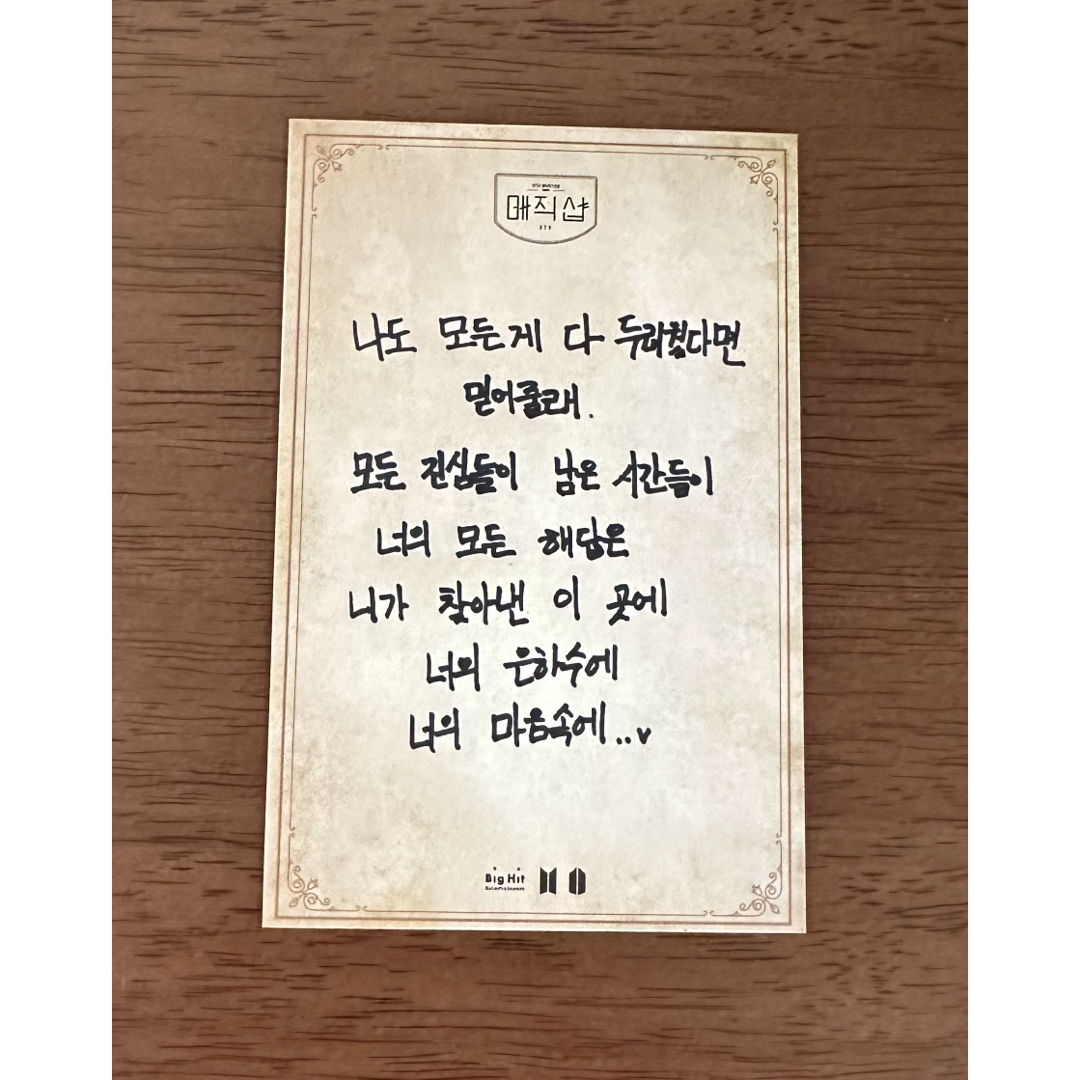 매직샵
BTS
나도 모든게 다 두려웠다면
믿어줄래.
모든 진심들이 남은 시간들이
너의 모든 해답은
니가 찾아낸 이 곳에
너의 은하수에
너의 마음속에..
Big Hit